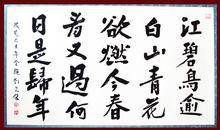 江碧鳥逾
白山青花
欲燃今春
看又過何
日是歸年